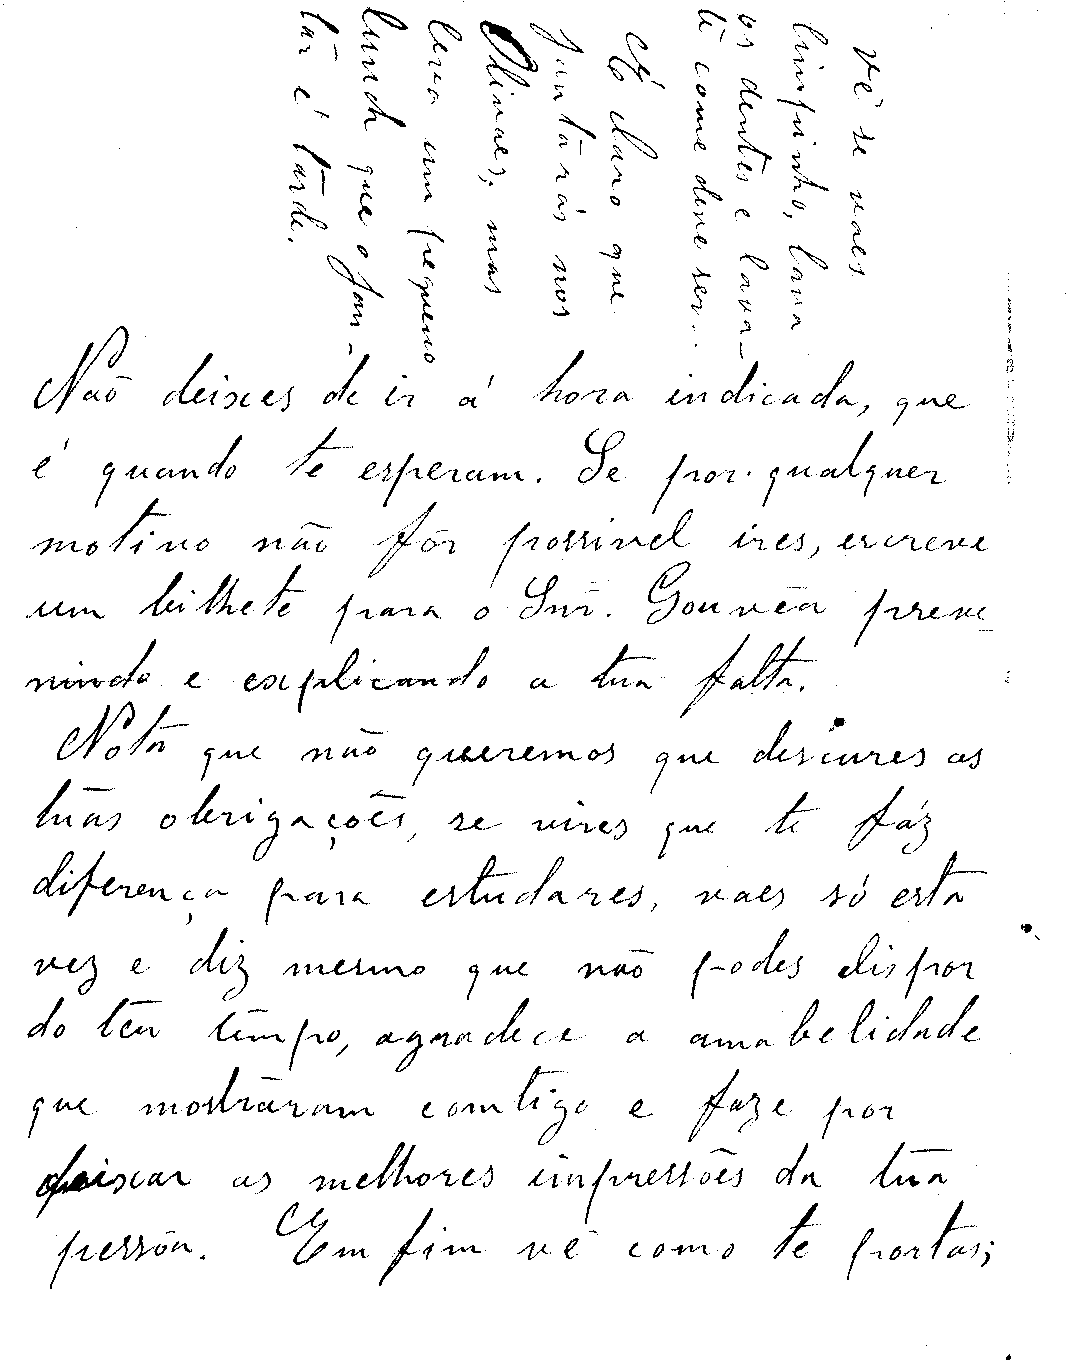 Não deixes de ir á hora indicada, que
é quando te esperam. Se por qualquer
motivo não fôr possivel ires, escreve
um bilhete para o Snr. Gouvêa preve
nindo e explicando a tua falta.
Nota que não queremos que descures as
tuas obrigações, se vires que te fáz
diferença para estudares, vaes só esta
vez e diz mesmo que não podes dispor
do teu tempo, agradece a amabelidade
que mostraram comtigo e faze por
deixar as melhores impressões da tua
pessôa. Em fim vê como te portas;
vê se vaes
limpinho, lava
os dentes e lava-
te como deve ser...
É claro que
jantarás nos
Olivaes; mas
leva um pequeno
lunch que o jan-
tar é tarde.